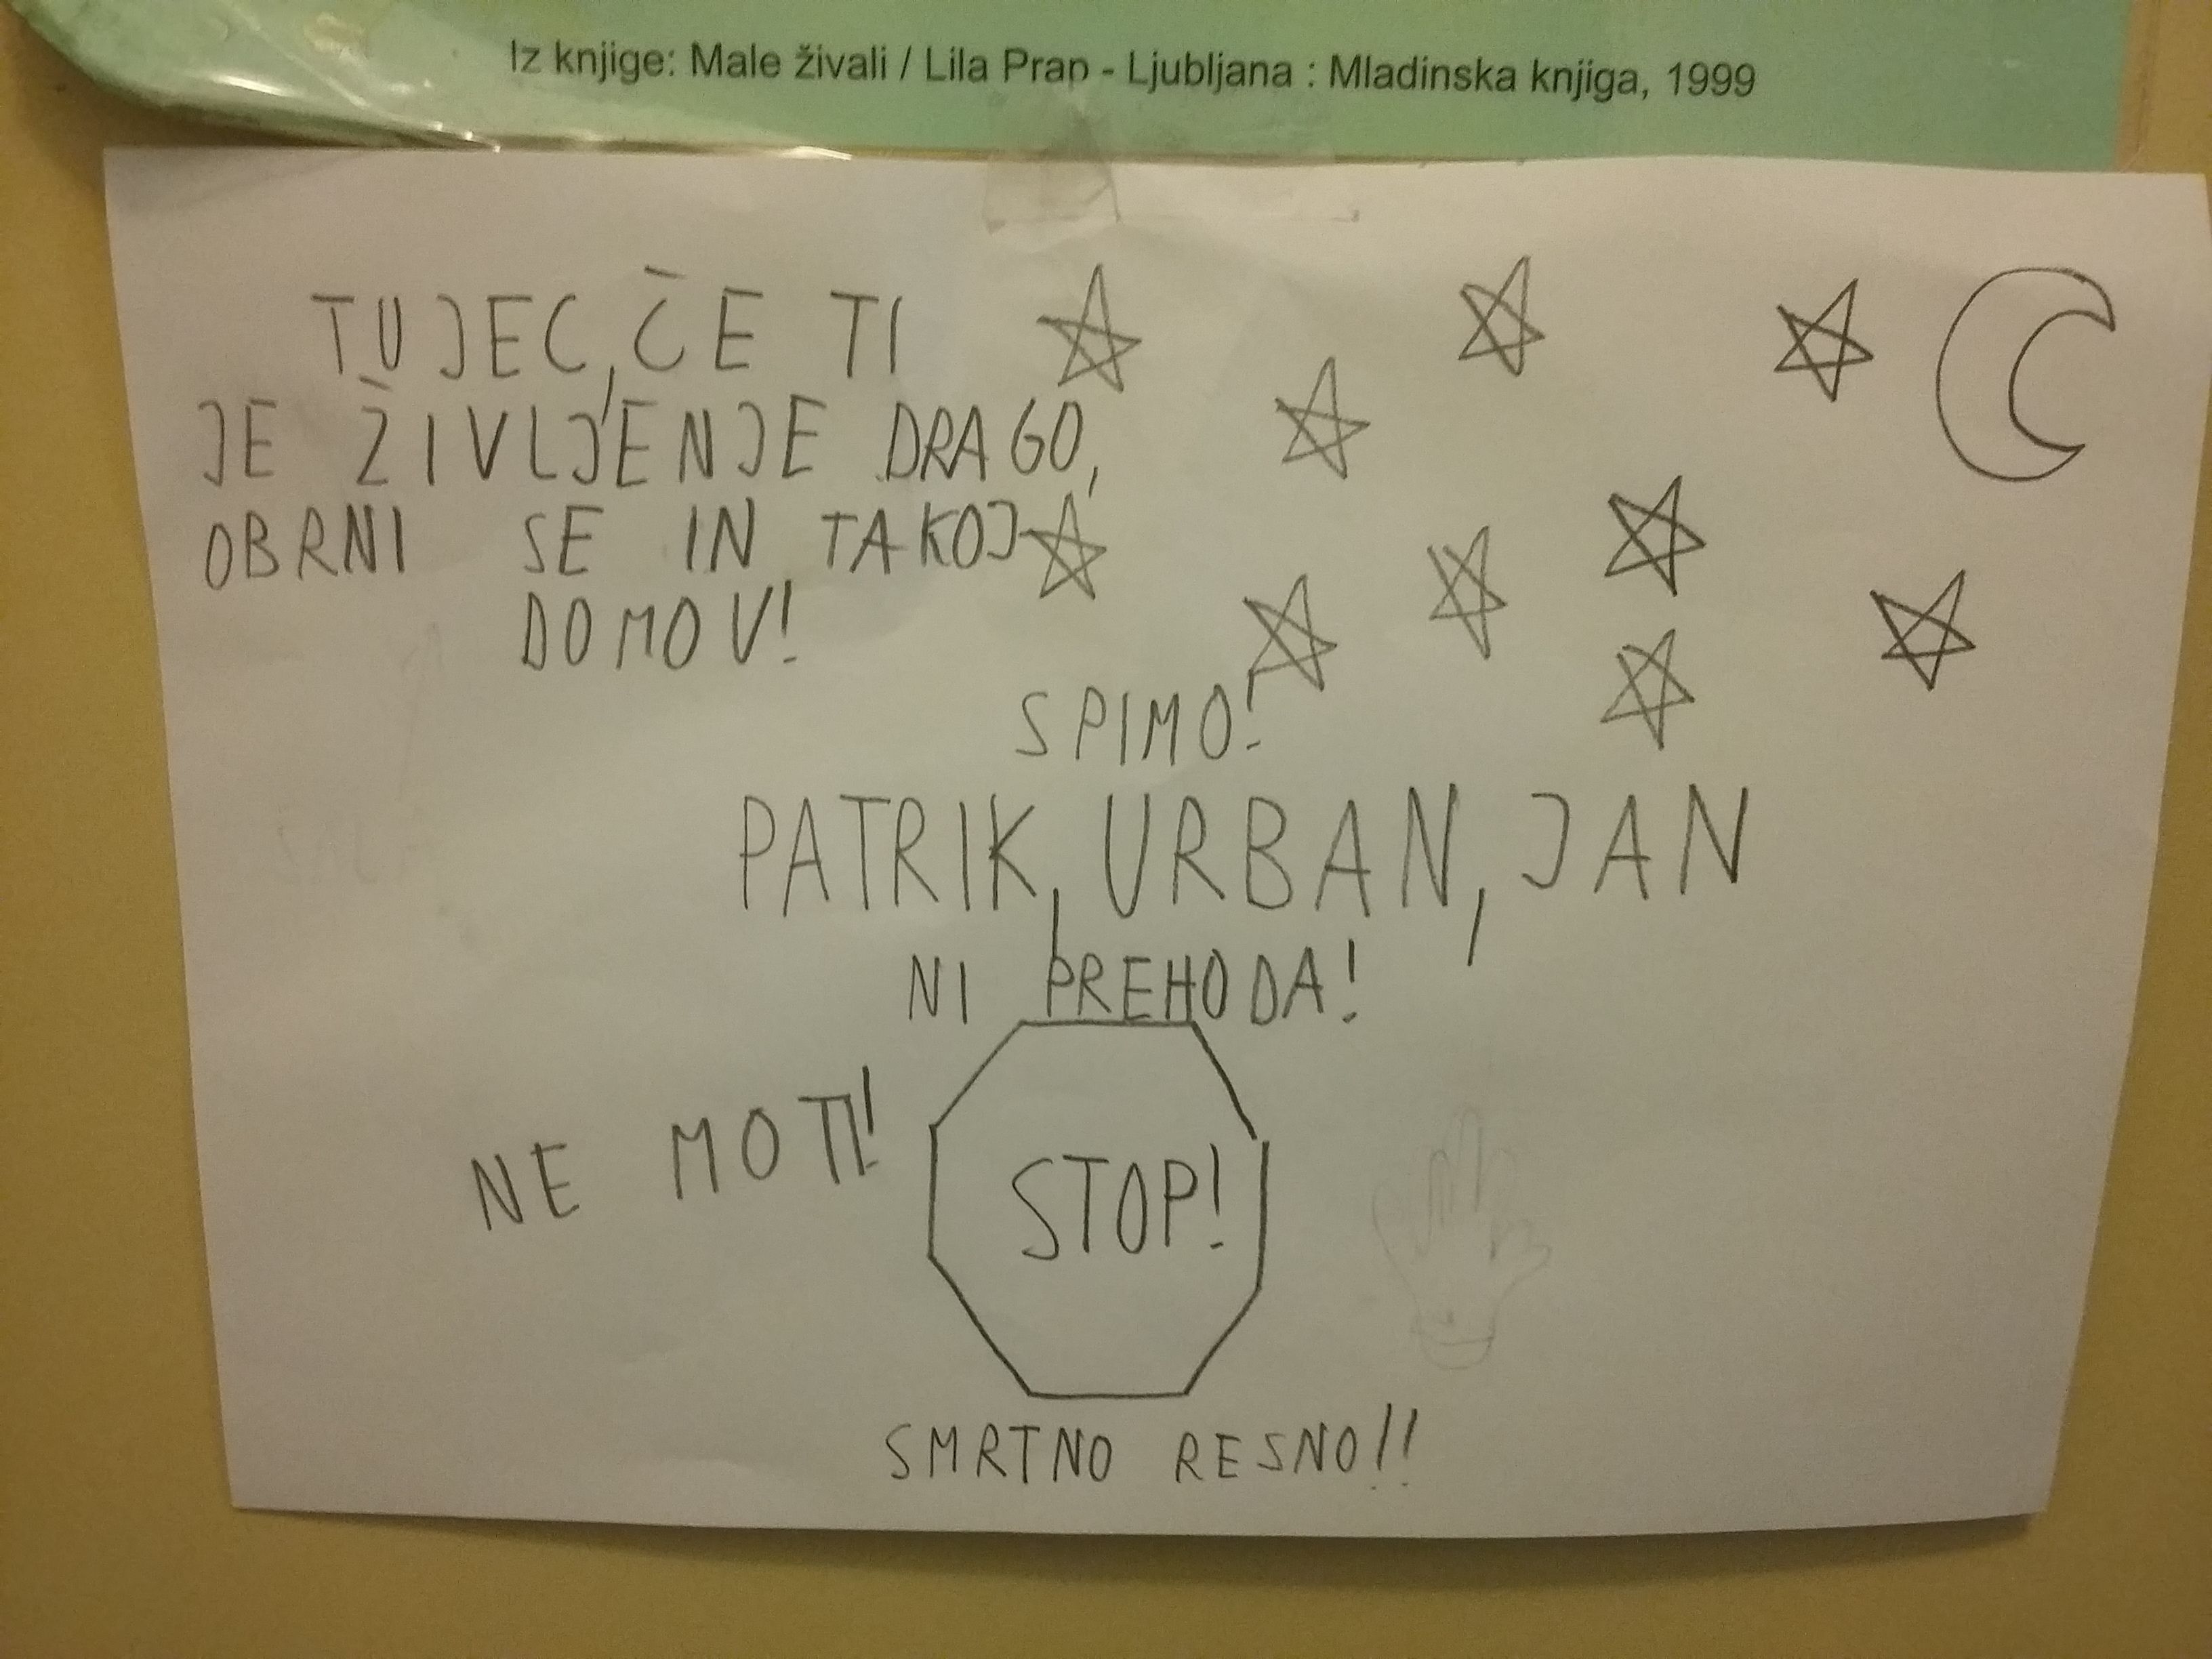 Iz knjige: Male živali / Lila Prap - Ljubljana : Mladinska knjiga, 1999
TUJEC, ČE TI
JE ŽIVLJENJE DRAGO,
OBRNI SE IN TAKOJ
DOMOV!
SPIMO!
PATRIK, URBAN, JAN
NI PREHODA!
NE MOTI!
STOP!
SMRTNO RESNO!!